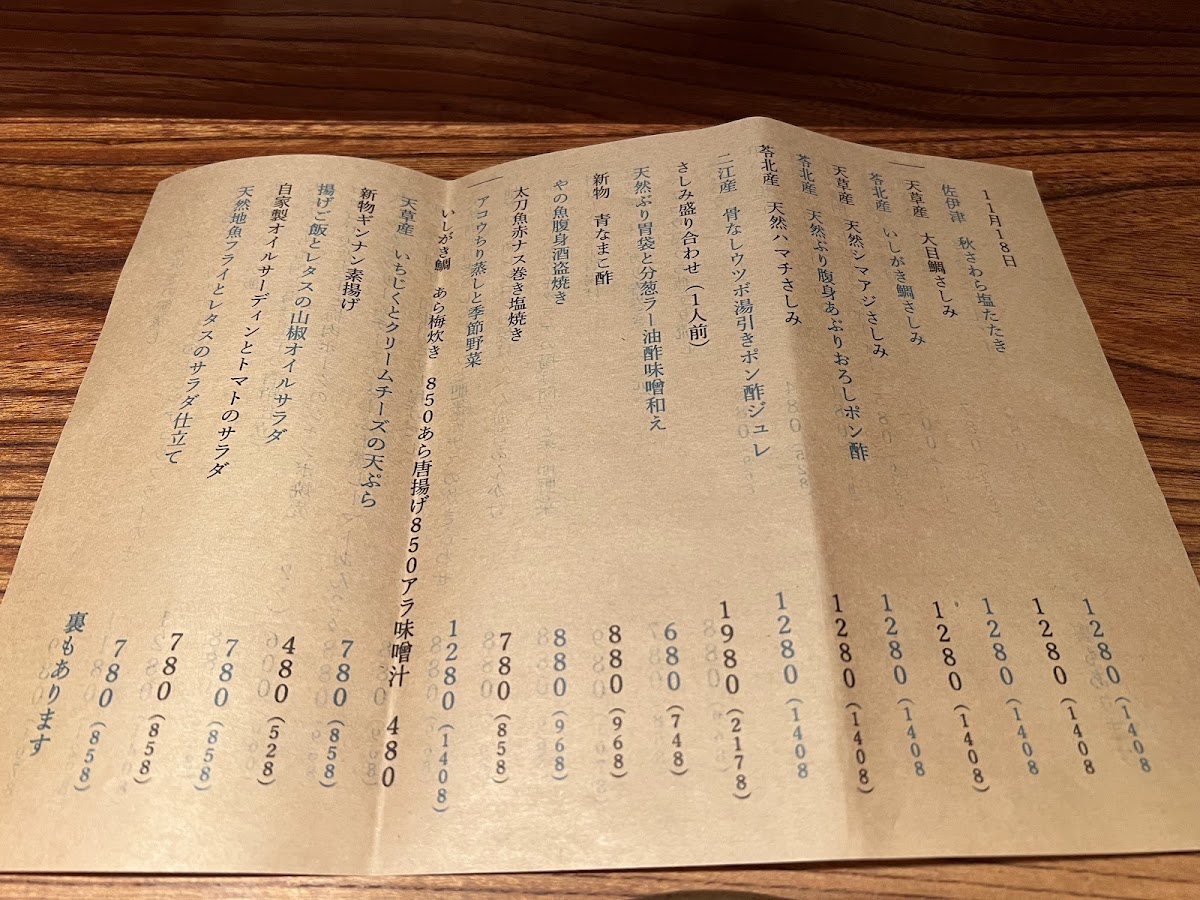 11月18日
佐伊津 秋さわら塩たたき 1280(1408
天草産 大目鯛さしみ 1280(1408
苓北産 いしがき鯛さしみ 1280(1408
天草産 天然シマアジさしみ 1280(1408)
苓北産 天然ぶり腹身あぶりおろしポン酢 1280(1408
苓北産 天然ハマチさしみ 1280(1408)
二江産 骨なしウツボ湯引きポン酢ジュレ 1280(1408
さしみ盛り合わせ(1人前) 1980(2178)
天然ぶり胃袋と分葱ラー油酢味噌和え 680(748)
新物 青なまこ酢 880(968)
やの魚腹身酒盗焼き 880(968)
太刀魚赤ナス巻き塩焼き 780(858)
アコウちり蒸しと季節野菜 1280(1408)
いしがき鯛 あら梅炊き 850あら唐揚げ850アラ味噌汁 480
天草産 いちじくとクリームチーズの天ぷら 780(858)
新物ギンナン素揚げ 480(528)
揚げご飯とレタスの山椒オイルサラダ 780(858)
自家製オイルサーディンとトマトのサラダ 780(858)
天然地魚フライとレタスのサラダ仕立て 780(858)
裏もあります